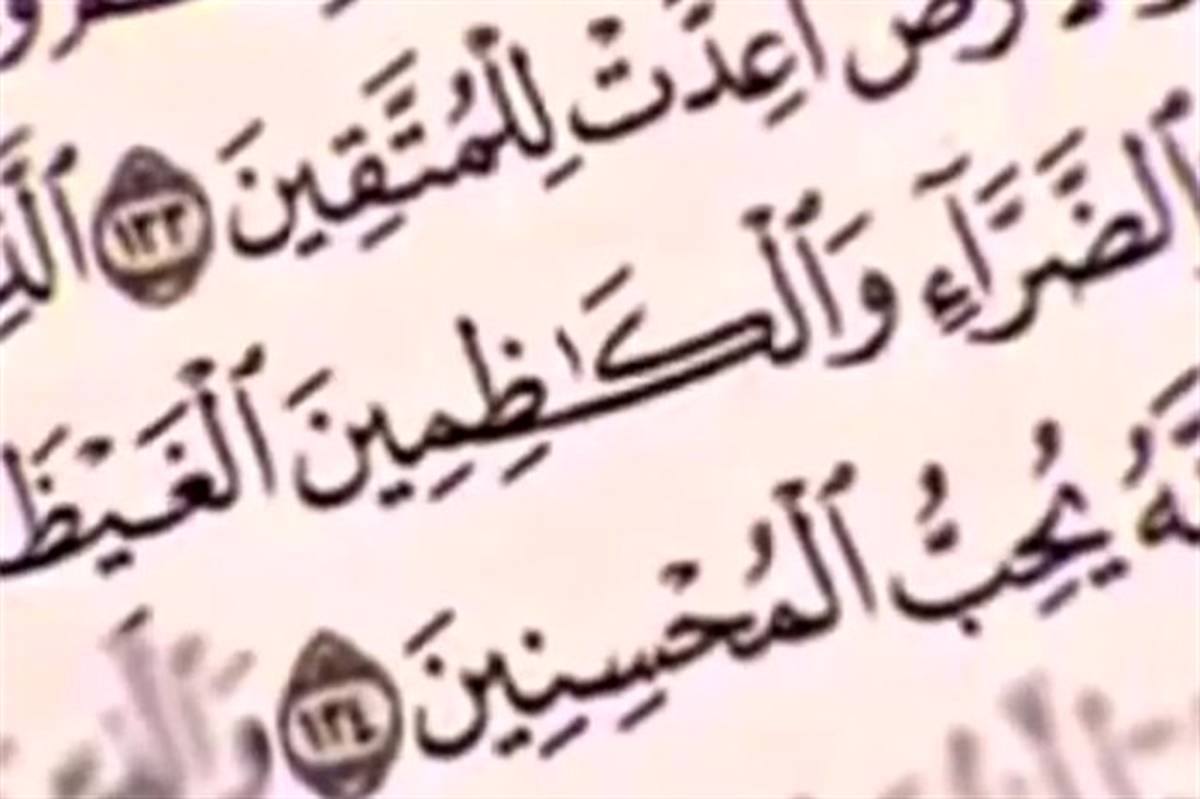 أُعِدَّتْ لِلْمُتَّقِينَ ١٣٣
ٱلضَّرَّآءِ وَٱلْكَٰظِمِينَ ٱلْغَيْظَ
يُحِبُّ ٱلْمُحْسِنِينَ ١٣٤